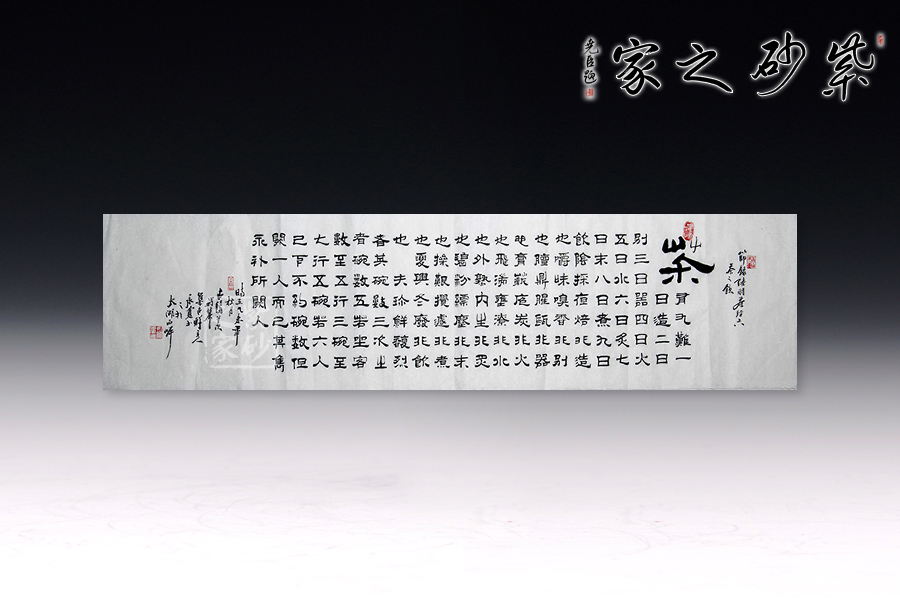 紫砂之家
堯臣題
節錄陸羽茶經六
茶之飲
茶
有九難一
曰造二曰
別三曰器四曰火
五曰水六曰炙七
曰末八曰煮九曰
飲陰採夜焙非造
也嚼味嗅香非別
也膻鼎腥甌非器
也膏薪庖炭非火
也飛湍壅潦非水
也外熟內生非炙
也碧粉縹塵非末
也操艱攪遽非煮
也夏興冬廢非飲
也 夫珍鮮馥烈
者其碗數三次之
者碗數五若坐客
數至五行三碗至
七行五碗若六人
已下不約碗數但
闕一人而已其雋
永補所闕人
太湖之畔